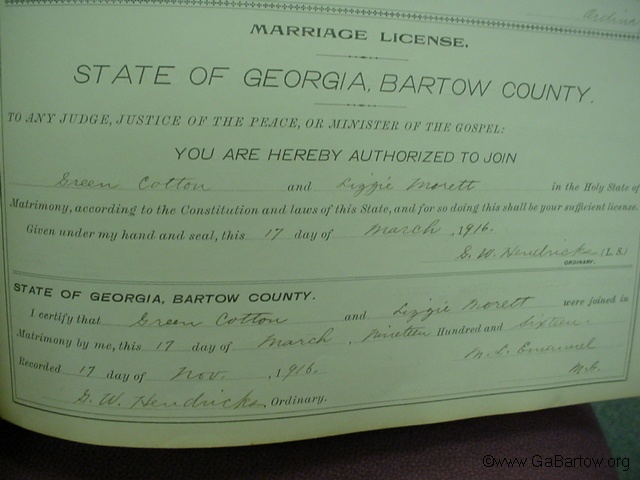 Ordinary
MARRIAGE LICENSE.
STATE OF GEORGIA, BARTOW COUNTY.
TO ANY JUDGE, JUSTICE OF THE PEACE, OR MINISTER OF THE GOSPEL:
YOU ARE HEREBY AUTHORIZED TO JOIN
Green Cotton and Lizzie Morett in the Holy State of
Matrimony, according to the Constitution and laws of this State, and for so doing this shall be your sufficient license.
Given under my hand and seal, this 17 day of March, 1916.
G. W. Hendricks (L. S.)
ORDINARY.
STATE OF GEORGIA, BARTOW COUNTY.
I certify that Green Cotton and Lizzie Morett were joined in
Matrimony by me, this 17 day of March, Nineteen Hundred and Sixteen.
Recorded 17 day of Nov., 1916. M. L. Emanuel
G. W. Hendricks, Ordinary. M. G.
©www.GaBartow.org